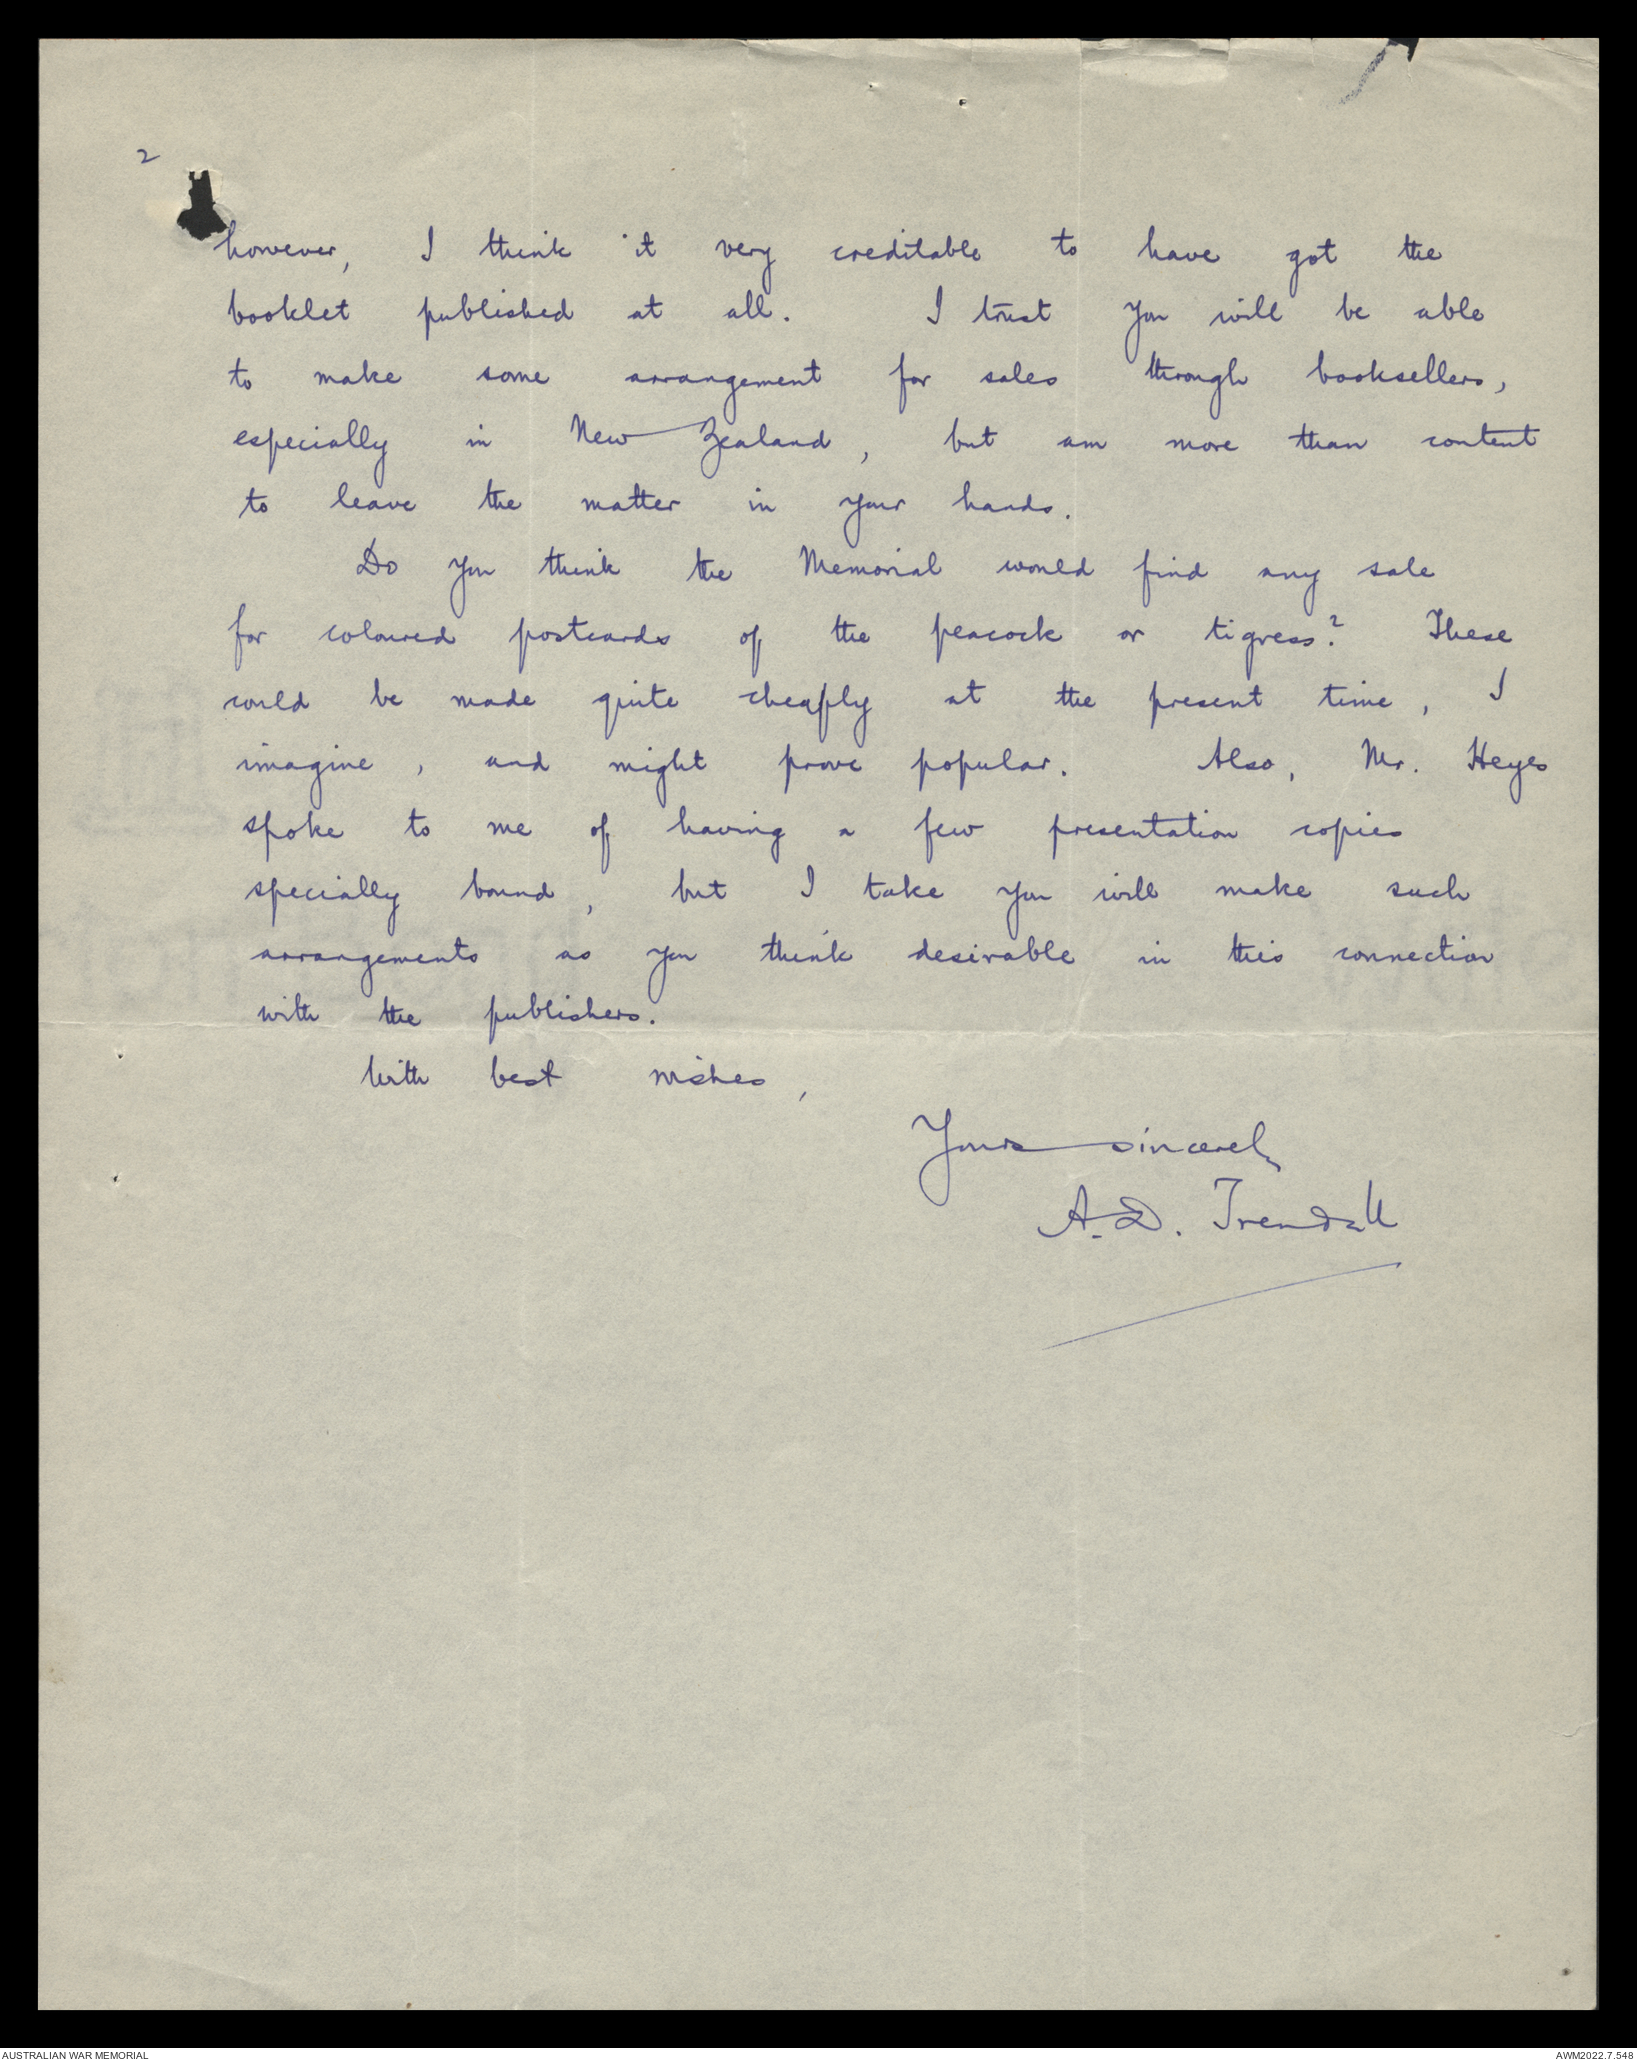 2
however, I think it very creditable to have got the
booklet published at all. I trust you will be able
to make some arrangement for sales through booksellers,
especially in New Zealand, but am more than content
to leave the matter in your hands.
Do you think the Memorial would find any sale
for coloured postcards of the peacock or tigress? These
could be made quite cheaply at the present time, I
imagine, and might prove popular. Also, Mr. Heyes
spoke to me of having a few presentation copies
specially bound, but I take you will make such
arrangements as you think desirable in this connection
with the publishers.
With best wishes,
Yours sincerely
A.D. Trendall
AUSTRALIAN WAR MEMORIAL
AWM2022.7.548